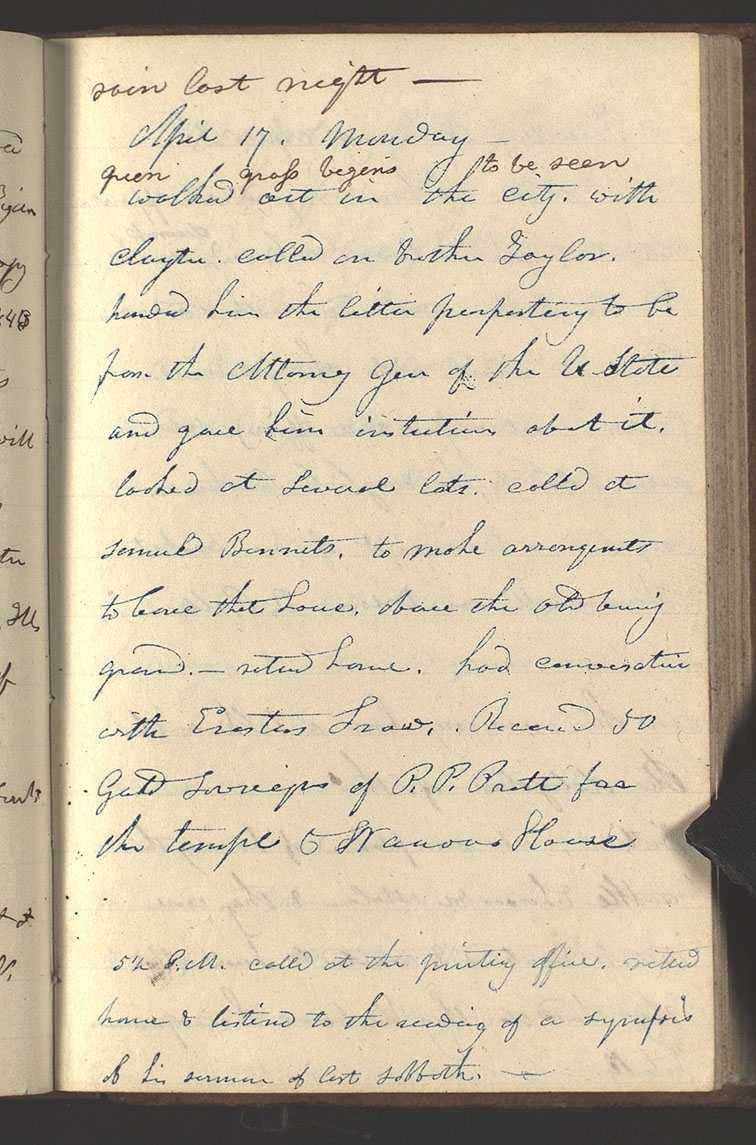 rain last night —
April 17. Monday —
green grass begins to be seen
walked out in the city. with
clayton. called on brother Taylor.
handed him the letter perporting to be
from the Attorney Gen of the U- State
and gave him instructions about it.
looked at several lots. called at
samuel Bennets. to make arrangements
to leave that house. above the old burying
ground. — returd home. had conversation
with Erastus Snow. Received 50
Gold sovreigns of P. P. Pratt for
the temple & Nauvoo House
5½ P.M. called at the printing office. returd
home & listend to the reading of a synopsis
of his sermon of last sabbath. —